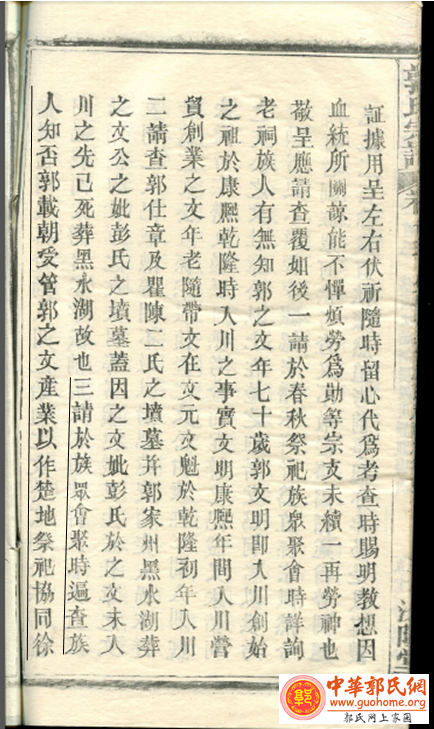 証據用呈左右伏祈隨時留心代爲考查時賜明教想因
血統所關諒能不憚煩勞爲勛等宗支未續一再勞神也
敬呈應請查覆如後一請於春秋祭祀族衆聚會時詳詢
老祠族人有無知郭之文年七十歲郭文明卽入川創始
之祖於康熙乾隆時入川之事實文明康熙年間入川營
貿創業之文年老隨帶文在文元文魁於乾隆初年入川
二請查郭仕章及瞿陳二氏之墳墓幷郭家州黑水湖葬
之文公之妣彭氏之墳墓蓋因之文妣彭氏於之文未入
川之先已死葬黑水湖故也三請於族眾會聚時遍查族
人知否郭載朝受管郭之文產業以作楚地祭祀協同徐
中華郭氏網
www.guohome.org
郭氏网上家園